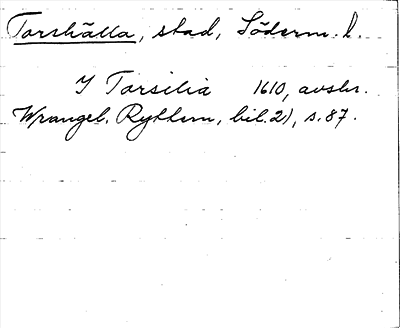 Torshälla, stad, Söderm. l.
I Torsilia 1610, avskr.
Wrangel. Ryttern, bil. 21, s. 87.